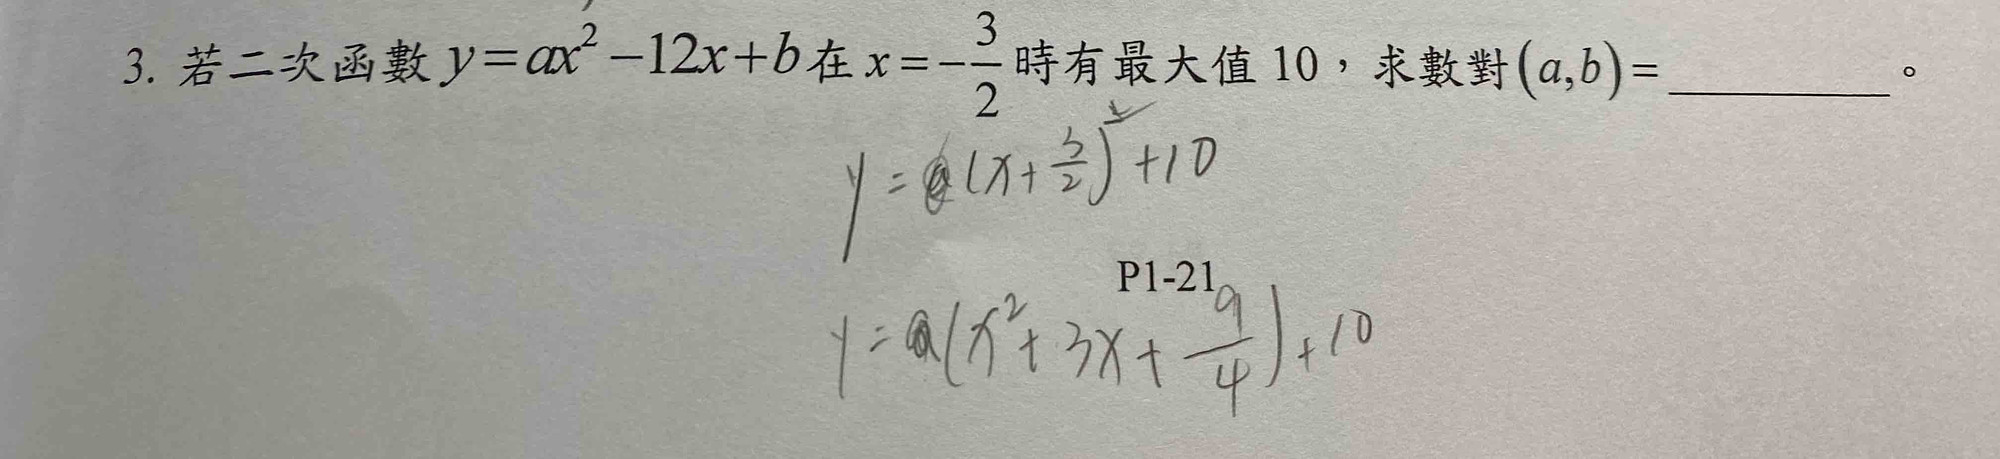 3. 若二次函數 y=ax²−12x+b 在 x=−3/2 時有最大值 10,求數對(a,b)=__________。
y=a(x+3/2)²+10
P1-21
y=a(x²+3x+9/4)+10